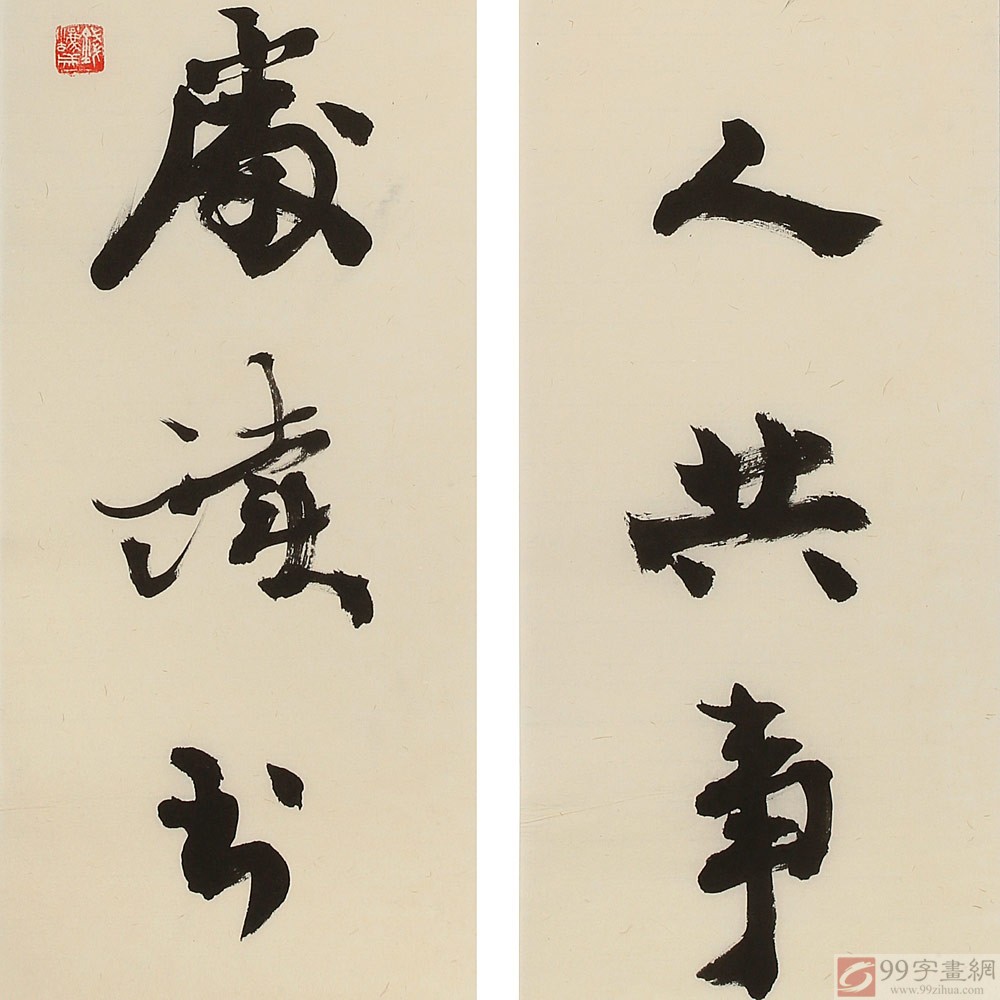 人共事
處讀书
99字畫網
www.99zihua.com